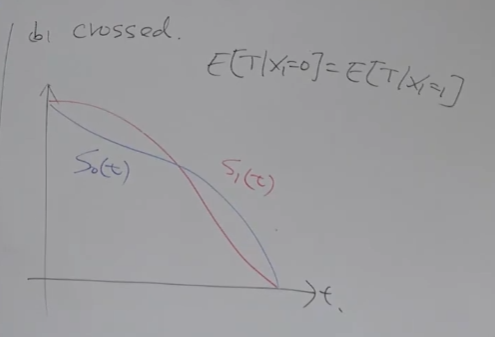 (b) crossed.
E[T|X₁=0]=E[T|X₁=1]
S₀(t)
S₁(t)
t.